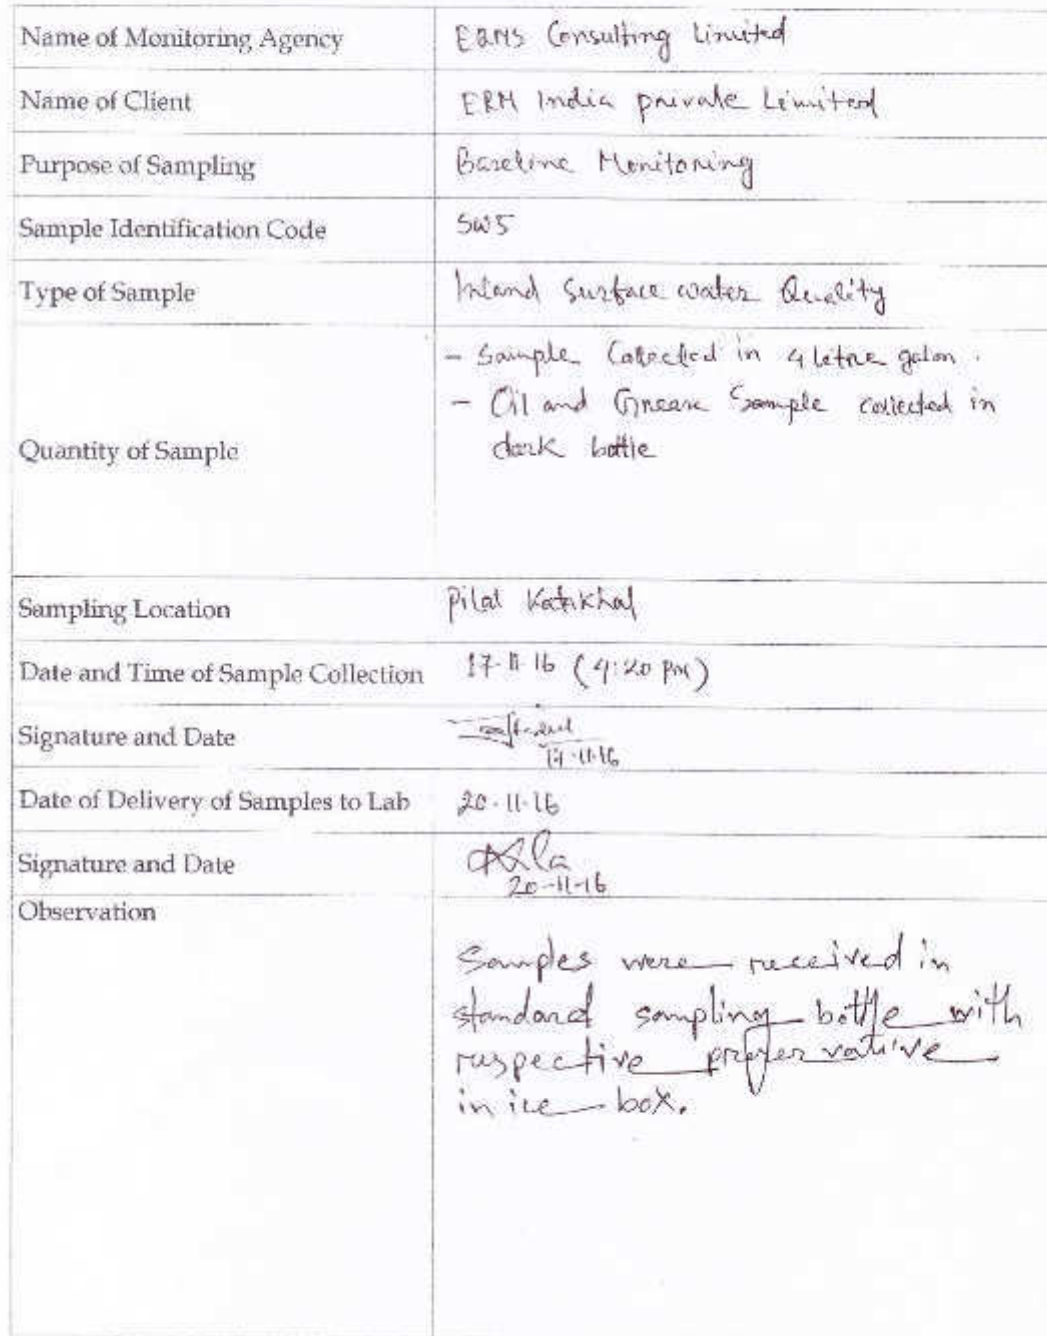 Name of Monitoring Agency EQMS Consulting Limited
Name of Client ERM India private Limited
Purpose of Sampling Baseline Monitoring
Sample Identification Code SW5
Type of Sample Inland Surface water Quality
- Sample Collected in 4 letre galon.
- Oil and Grease Sample collected in
dark bottle
Quantity of Sample
Sampling Location Pilat Katakhal
Date and Time of Sample Collection 17-11-16 (4:20 PM)
Signature and Date
17-11-16
Date of Delivery of Samples to Lab 20-11-16
Signature and Date
20-11-16
Observation
Samples were received in
standard sampling bottle with
respective preservative
in ice box.